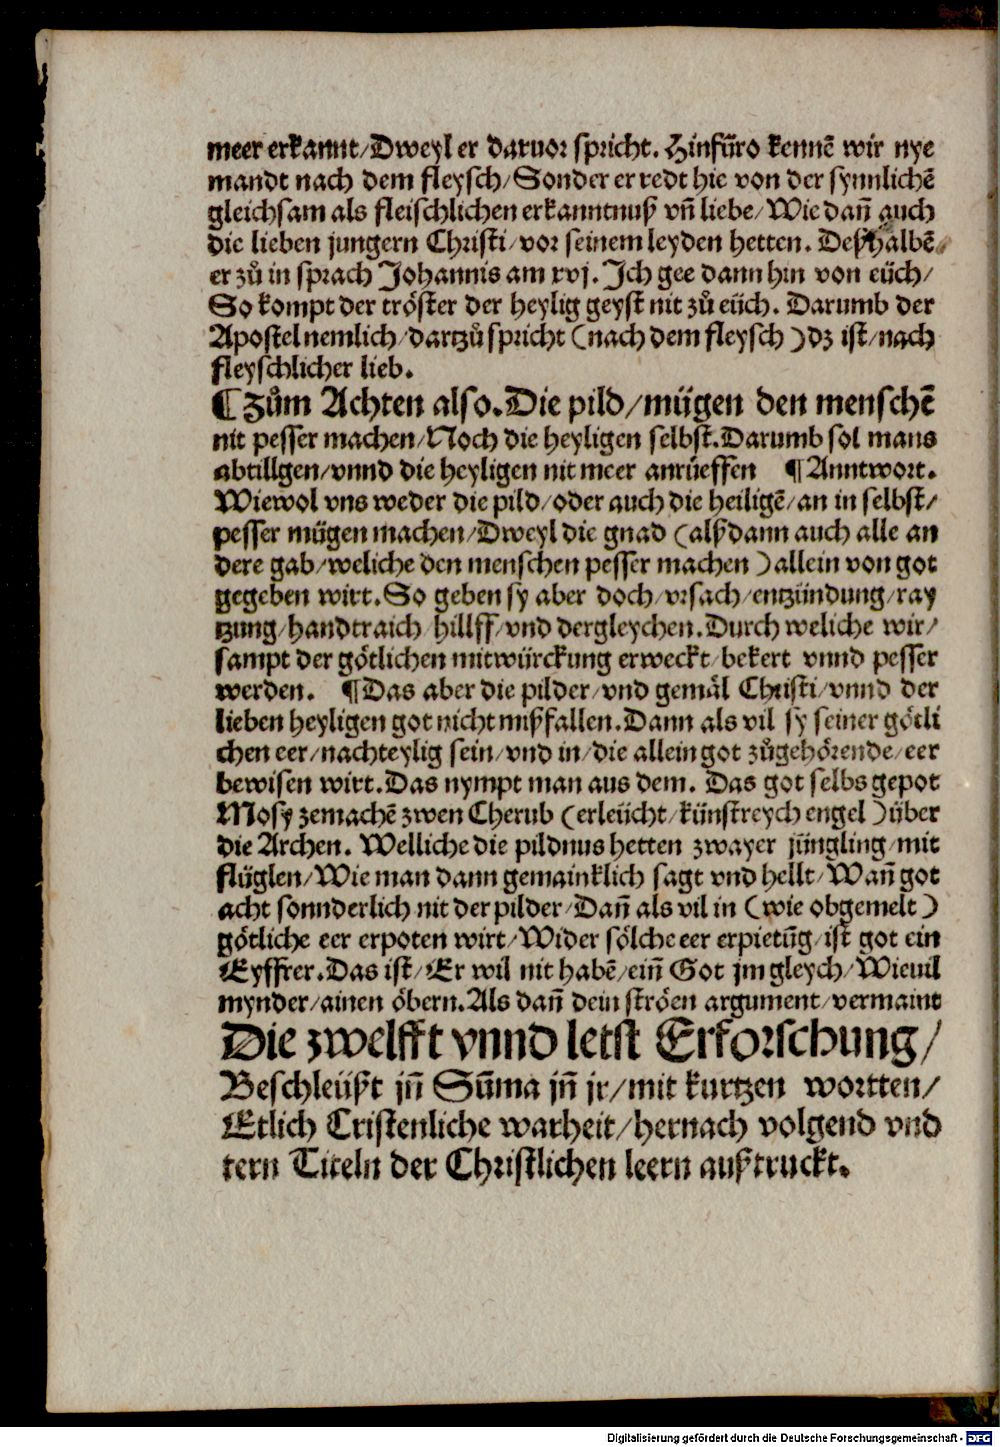 meer erkannt/Dweyl er daruor spricht. Hinfüro kennē wir nye
mandt nach dem fleysch/Sonder er redt hie von der synnlichē
gleichsam als fleischlichen erkanntnuß vñ liebe/Wie dañ auch
die lieben jungern Christi/vor seinem leyden hetten. Deßhalbē
er zů in sprach Johannis am xvj. Ich gee dann hin von eüch/
So kompt der tröster der heylig geyst nit zů eüch. Darumb der
Apostel nemlich/dartzů spricht (nach dem fleysch) dz ist/nach
fleyschlicher lieb.
¶ Zům Achten also. Die pild/mügen den menschē
nit pesser machen/Noch die heyligen selbst. Darumb sol mans
abtillgen/vnnd die heyligen nit meer anrüeffen ¶ Anntwort.
Wiewol vns weder die pild/oder auch die heiligē/an in selbst/
pesser mügen machen/Dweyl die gnad (alß dann auch alle an
dere gab/weliche den menschen pesser machen) allein von got
gegeben wirt. So geben sy aber doch/vrsach/entzündung/ray
tzung/handtraich/hillff/vnd dergleychen. Durch weliche wir/
sampt der götlichen mitwürckung erweckt/bekert vnnd pesser
werden. ¶ Das aber die pilder/vnd gemäl Christi/vnnd der
lieben heyligen got nicht mißfallen. Dann als vil sy seiner götli
chen eer/nachteylig sein/vnd in/die allein got zůgehörende/eer
bewisen wirt. Das nympt man aus dem. Das got selbs gepot
Mosy zemachē zwen Cherub (erleücht/künstreych engel) über
die Archen. Welliche die pildnus hetten zwayer jüngling/mit
flüglen/Wie man dann gemainklich sagt vnd hellt/Wañ got
acht sonnderlich nit der pilder/Dañ als vil in (wie obgemelt)
götliche eer erpoten wirt/Wider sölche eer erpietūg/ist got ein
Eyffrer. Das ist/Er wil nit habē/eiñ Got jm gleych/Wieuil
mynder/ainen öbern. Als dañ dein ströen argument/vermaint
Die zwelfft vnnd letst Erforschung/
Beschleüßt jñ Sūma jñ jr/mit kurtzen wortten/
Etlich Cristenliche warheit/hernach volgend vnd
tern Titeln der Christlichen leern außtruckt.
Digitalisierung gefördert durch die Deutsche Forschungsgemeinschaft - DFG